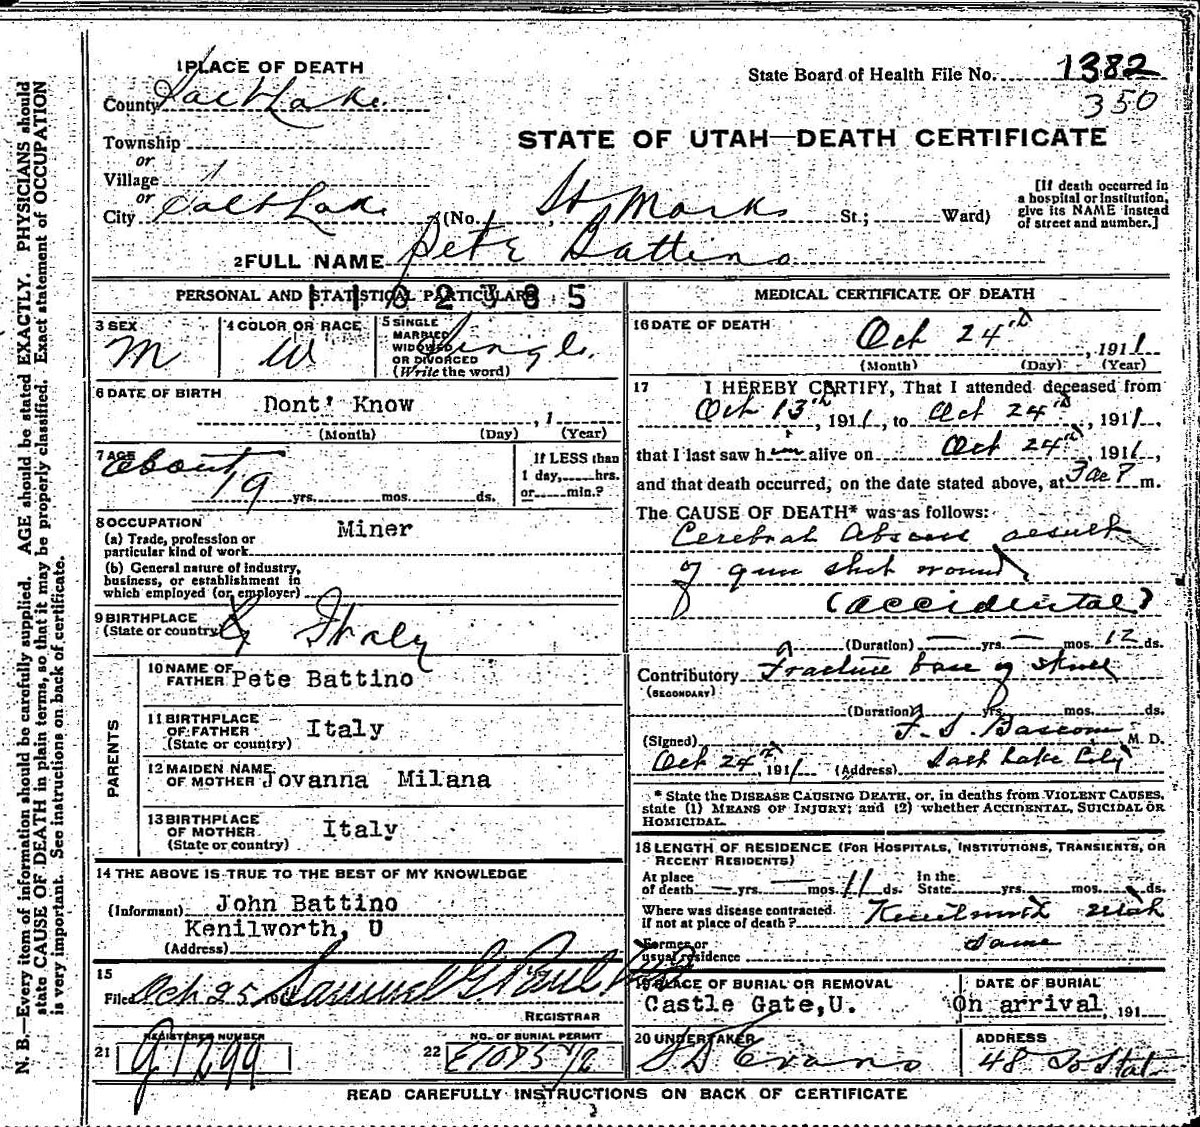 1 PLACE OF DEATH
County Salt Lake
State Board of Health File No. 1382
350
Township
or
Village
or
STATE OF UTAH—DEATH CERTIFICATE
City Salt Lake (No. St Marks St.; Ward)
[If death occurred in
a hospital or institution,
give its NAME instead
of street and number.]
2 FULL NAME Pete Battino
PERSONAL AND STATISTICAL PARTICULARS
3 SEX
M
4 COLOR OR RACE
W
5 SINGLE
MARRIED
WIDOWED
OR DIVORCED
(Write the word)
Single
6 DATE OF BIRTH
Dont' Know , 1
(Month) (Day) (Year)
7 AGE
about
19 yrs. mos. ds.
If LESS than
1 day, hrs.
or min.?
8 OCCUPATION
(a) Trade, profession or
particular kind of work
Miner
(b) General nature of industry,
business, or establishment in
which employed (or employer)
9 BIRTHPLACE
(State or country)
Italy
PARENTS
10 NAME OF
FATHER Pete Battino
11 BIRTHPLACE
OF FATHER
(State or country)
Italy
12 MAIDEN NAME
OF MOTHER Jovanna Milana
13 BIRTHPLACE
OF MOTHER
(State or country)
Italy
14 THE ABOVE IS TRUE TO THE BEST OF MY KNOWLEDGE
(Informant) John Battino
Kenilworth, U
(Address)
15
Filed Oct 25 191 Samuel G. Paul
REGISTRAR
21 REGISTERED NUMBER
G1299
22 NO. OF BURIAL PERMIT
MEDICAL CERTIFICATE OF DEATH
16 DATE OF DEATH
Oct 24th , 1911
(Month) (Day) (Year)
17 I HEREBY CERTIFY, That I attended deceased from
Oct 13th , 1911, to Oct 24th , 1911,
that I last saw him alive on Oct 24th , 1911,
and that death occurred, on the date stated above, at 3 m.
The CAUSE OF DEATH* was as follows:
Cerebral Abscess result
of gun shot wound
(accidental)
(Duration) — yrs. — mos. 12 ds.
Contributory Fracture base of skull
(SECONDARY)
(Duration) yrs. mos. ds.
(Signed) F. S. Bascom M. D.
Oct 24th, 1911 (Address) Salt Lake City
* State the DISEASE CAUSING DEATH, or, in deaths from VIOLENT CAUSES,
state (1) MEANS OF INJURY; and (2) whether ACCIDENTAL, SUICIDAL OR
HOMICIDAL.
18 LENGTH OF RESIDENCE (FOR HOSPITALS, INSTITUTIONS, TRANSIENTS, OR
RECENT RESIDENTS)
At place
of death — yrs. — mos. 11 ds.
In the
State yrs. mos. ds.
Where was disease contracted
If not at place of death? Kenilworth Utah
Former or
usual residence same
19 PLACE OF BURIAL OR REMOVAL
Castle Gate, U.
DATE OF BURIAL
On arrival, 191
20 UNDERTAKER
S D Evans
ADDRESS
48 So State
READ CAREFULLY INSTRUCTIONS ON BACK OF CERTIFICATE
N. B.—Every item of information should be carefully supplied. AGE should be stated EXACTLY. PHYSICIANS should
state CAUSE OF DEATH in plain terms, so that it may be properly classified. Exact statement of OCCUPATION
is very important. See instructions on back of certificate.